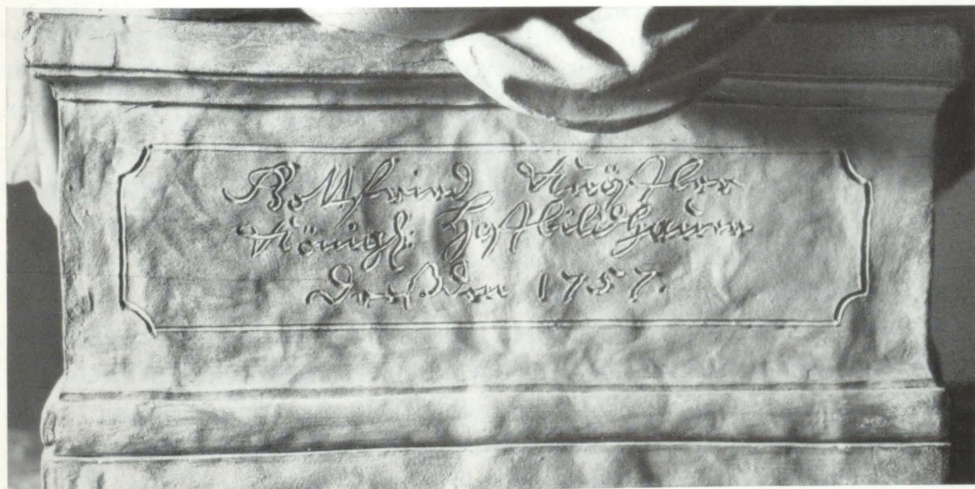 Gottfried Knöffler
Königl: Hoffbildhauer
Dreßden 1757.